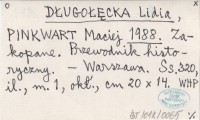 DŁUGOŁĘCKA Lidia,
PINKWART Maciej 1988. Za-
kopane. Przewodnik histo-
ryczny. – Warszawa. Ss. 320,
il., m. 1, okł., cm 20 x 14. WHP